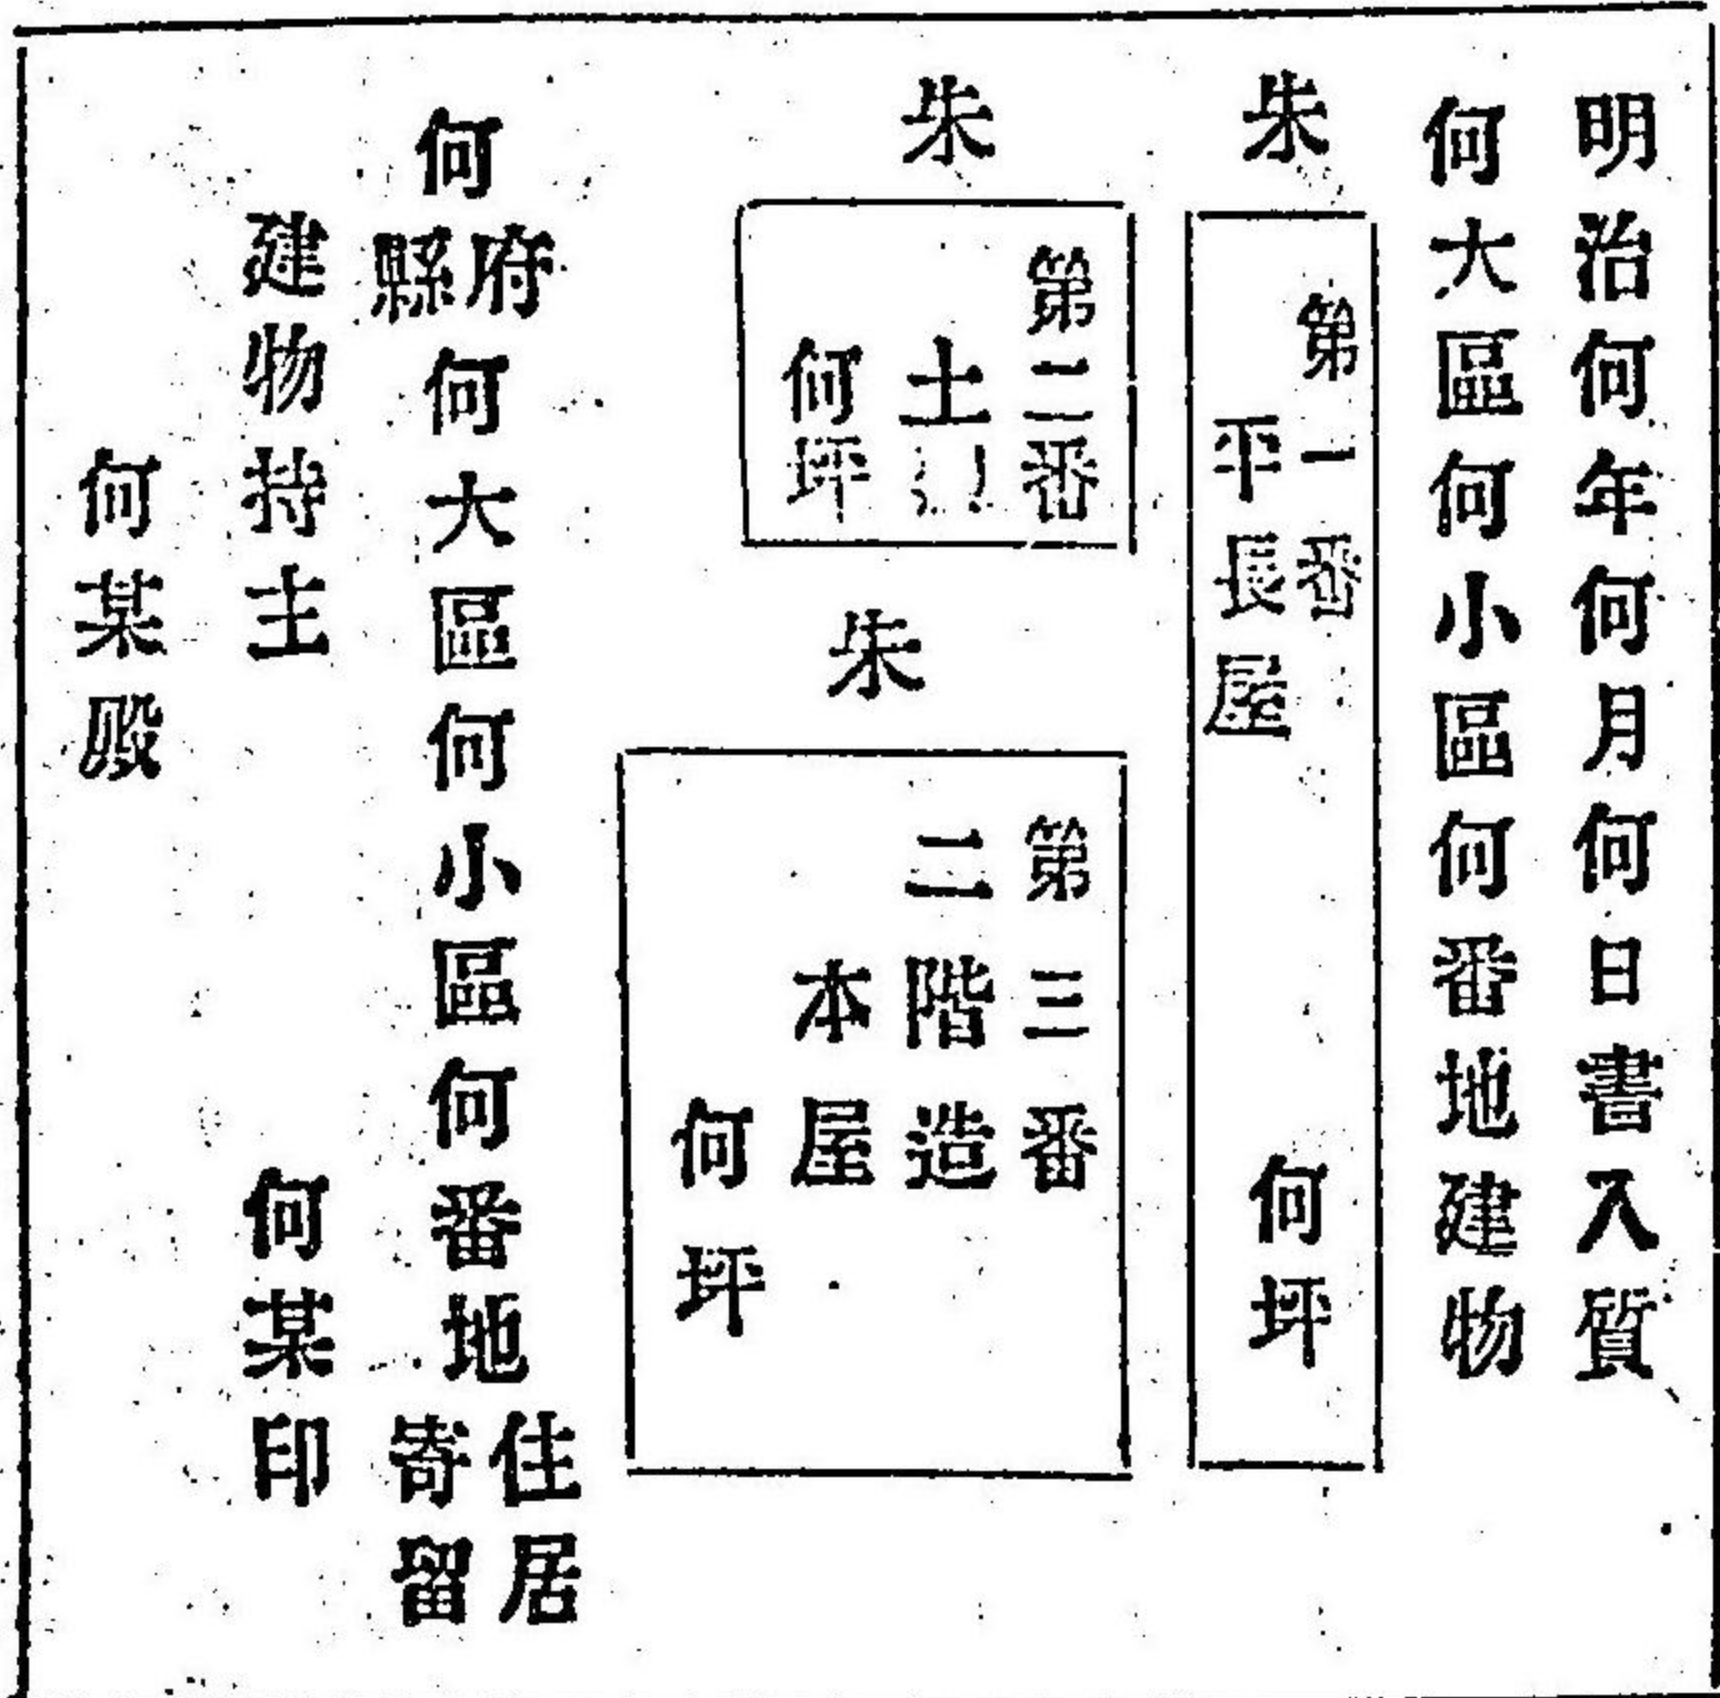 明治何年何月何日書入質
何大區何小區何番地建物
朱
第一番
平長屋
何坪
朱
第二番
土
何坪
朱
第三番
二階造
本屋
何坪
何府縣何大區何小區何番地住居寄留
建物持主 何某印
何某殿